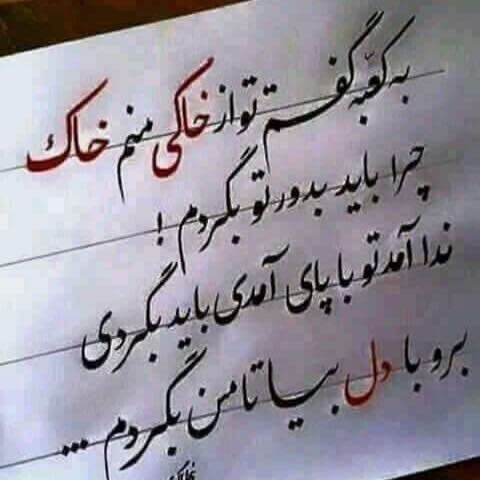 به کعبه گفتم تو از خاکی منم خاک
چرا باید بدور تو بگردم !
ندا آمد تو با پای آمدی باید بگردی
برو با دل بیا تا من بگردم ...